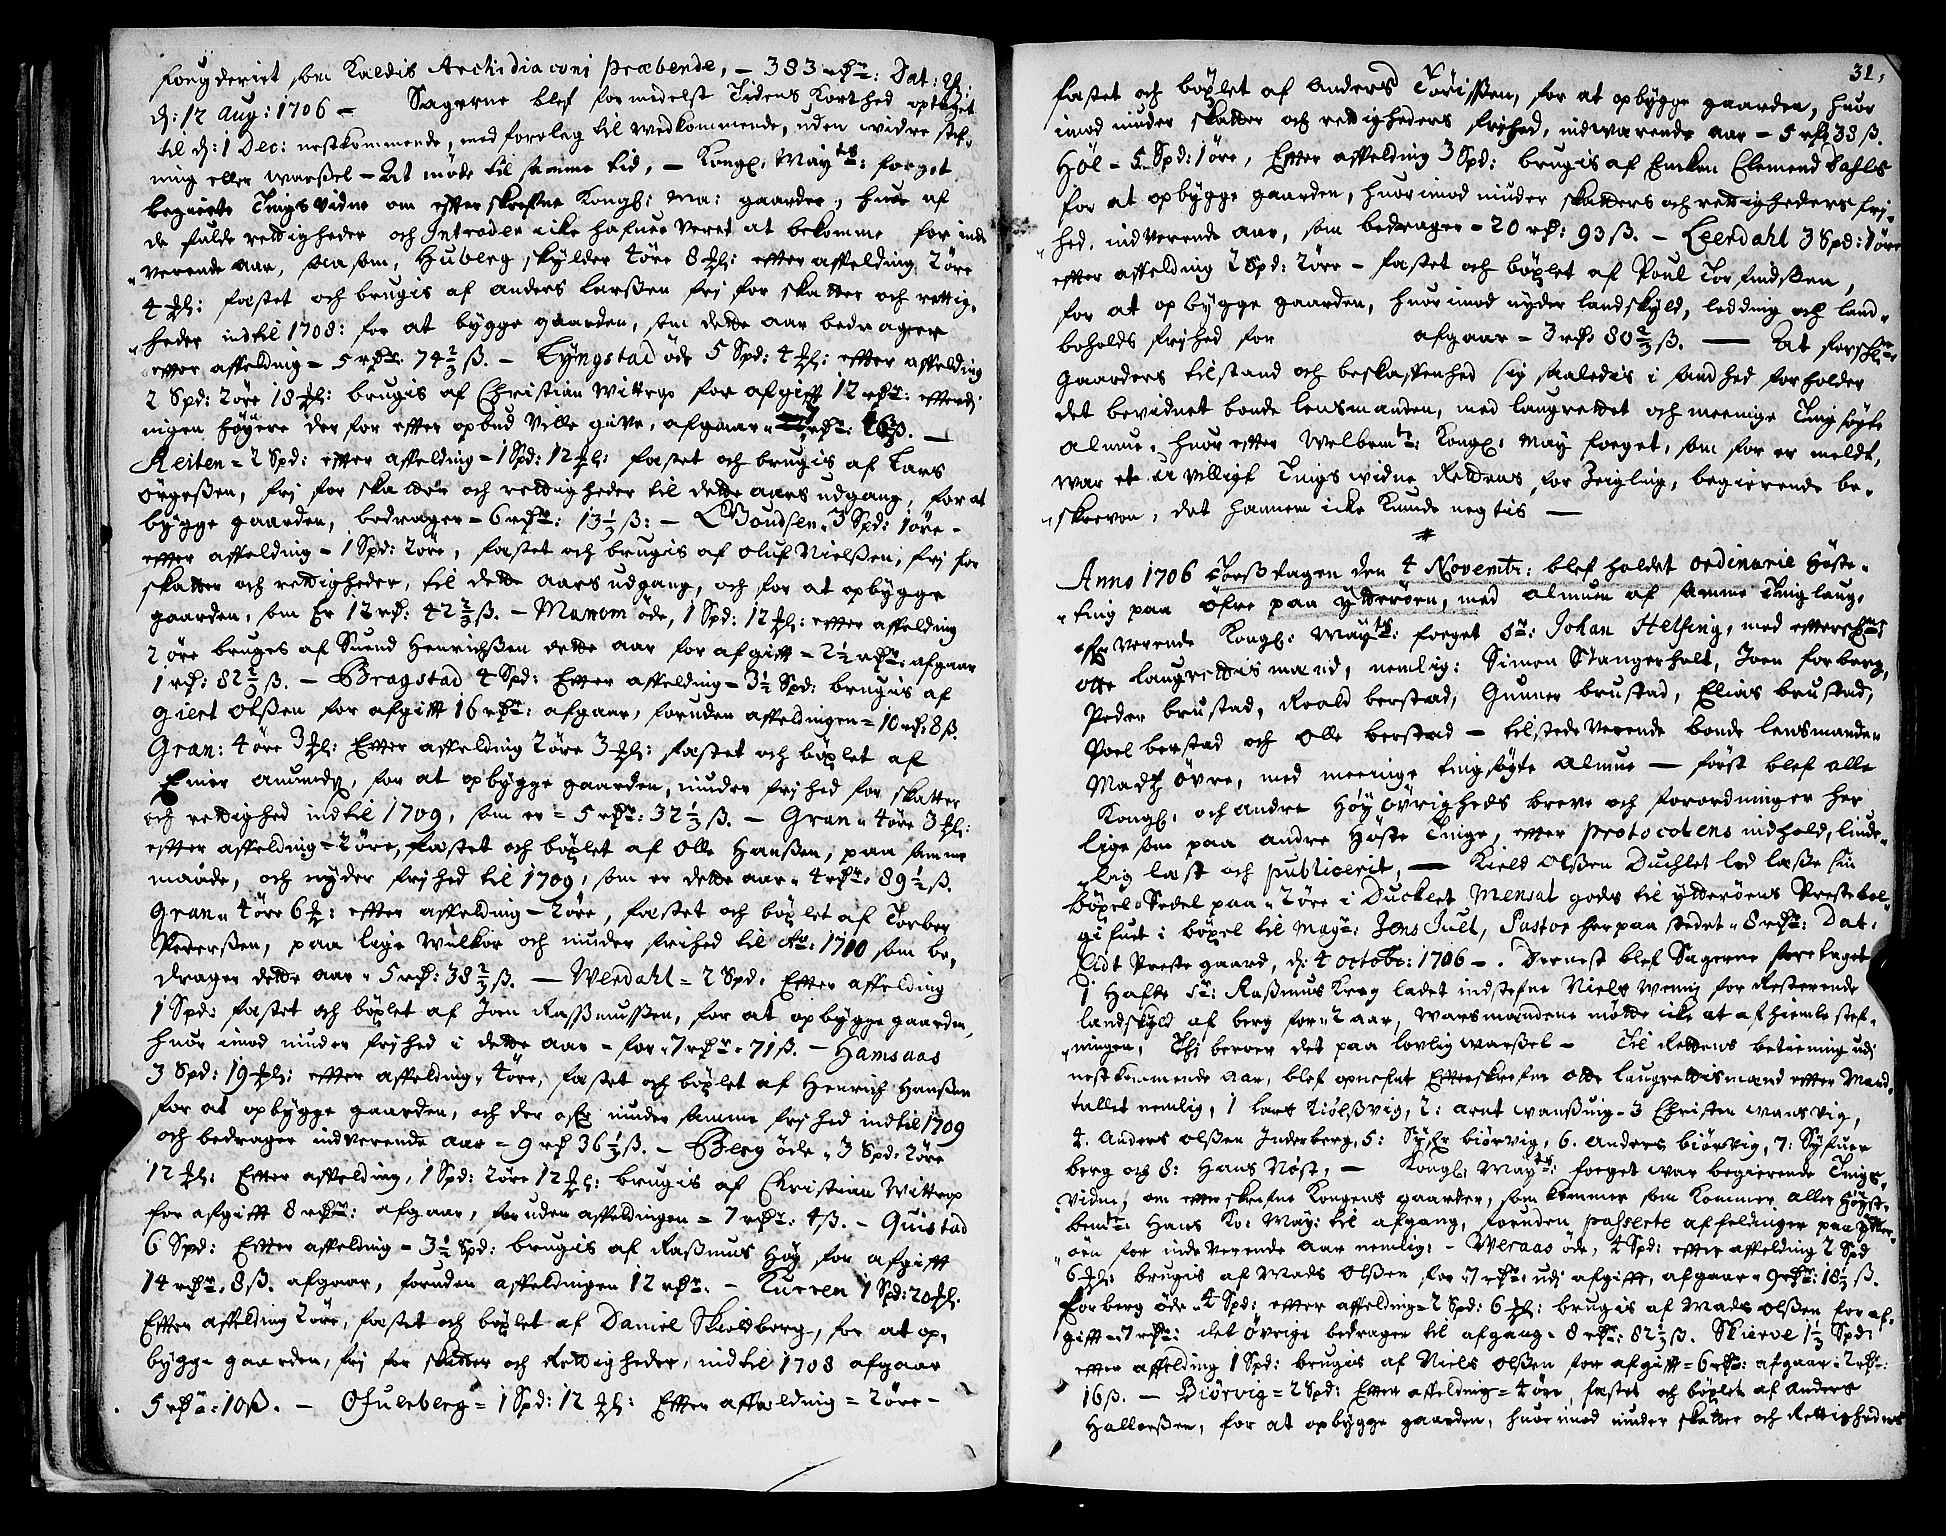 fougderiet som Kaldis Archidiaconi præbende, – 383 rdr: Dat:
d: 12 Aug: 1706 – Sagerne blef formedelst Tidens Korthed optaget
til d: 1 Dec: nestkommende, med foreleg til wedkommende, uden widre stef-
ning eller warßel – At møde til samme tid, – Kongl: Maytts: foeget
begierte Tingsvidne om effterskrefne Kongl: Ma: gaarder, huor af
de fulde rettigheder och Intrader icke hafuer veret at bekomme for inde
verende aar, saasom, Huberg skylder 4øre 8 ℔l: effter affelding 2øre
4 ℔l: fæstet och brugis af anders larßen frj for skatter och rettig-
heder indtil 1708: for at bygge gaarden, som dette aar bedrager
effter affelding – 5 rdr: 74⅔ ß. – Lyngstad øde 5 Spd: 4 ℔l: effter affelding
2 Spd: 2øre 18 ℔l: brugis af Christian Wittrop for afgifft 12 rdr: efftersom
ingen høyere der for effter opbud ville give, afgaar rdr: ß. –
Reiten = 2 Spd: effter affelding = 1 Spd: 12 ℔l: fæstet och brugis af Lars
ørgeßen, frj for skatter och rettigheder til dette aars udgang, for at
bygge gaarden, bedrager = 6 rdr: 13⅓ ß: – 3 Spd: 1øre –
effter affelding = 1 Spd: 2øre, fæstet och brugis af oluf Nielßen, frj for
skatter och rettigheder, til dette aars udgang, och for at opbygge
gaarden, som Er 12 rdr: 42⅔ ß. – Mamom øde, 1 Spd: 12 ℔l: effter affelding
2 øre bruges af Suend Henrichßen dette aar for afgifft = 2½ rdr: afgaar
1 rdr: 82⅔ ß. – Bragstad 4 Spd: Effter affelding = 3½ Spd: brugis af
Giert olßen for afgifft 16 rdr: afgaar, foruden affeldingen = 10 rdr: 8 ß.
Gran: 4øre 3 ℔l: Effter affelding 2øre 3 ℔l: fæstet och bøxlet af
Einer amunds, for at opbygge gaarden, niuder frjhed for skatter
och rettighed indtil 1709, som er = 5 rdr: 32⅓ ß. – Gran = 4øre 3 ℔l:
effter affelding = 2øre, fæstet och bøxlet af Olle Hanßen, paa samme
maade, och nyder frjhed til 1709, som er dette aar = 4 rdr: 89½ ß.
Gran = 4øre 6 ℔l: effter affelding – 2øre, fæstet och bøxlet af Torber
Pederßen, paa lige Wilkor och niuder frihed til Ao: 1710 som be-
drager dette aar = 5 rdr: 38⅔ ß. – Werdahl = 2 Spd: Effter affelding
1 Spd: fæstet och bøxlet af Joen Rasßmusßen, for at opbygge gaarden,
huor imod niuder frjhed i dette aar – for = 7 rdr = 71 ß. – Hamsaas
3 Spd: 19 ℔l: effter affelding = 4øre, fæstet och bøxlet af Henrich Hanßen
for at opbygge gaarden, och der ofr niuder samme frjhed indtil 1709
och bedrager indverende aar – 9 rdr 36⅓ ß. – Berg øde = 3 Spd: 2øre
12 ℔l: Effter affelding, 1 Spd: 2øre 12 ℔l: brugis af Christian Wittrop
for afgifft 8 rdr: afgaar, foruden affeldingen = 7 rdr: 4 ß. – Quistad
6 Spd: Effter affelding = 3½ Spd: brugis af Raßmus Høy for afgifft
14 rdr: 8 ß. afgaar, foruden affeldingen 12 rdr. – Kurren 1 Spd: 20 ℔l.
Effter affelding 2øre, fæstet och bøxlet af Daniel Skieldberg, for at op-
bygge gaarden, frj for skatter och Rettigheder, indtil 1708 afgaar
5 rdr = 10 ß. – Juleberg = 1 Spd: 12 ℔l: Effter affelding = 2øre –
31.
fæstet och bøxlet af Anders Tørißßen, for at opbygge gaarden, huor
imod niuder skatter och rettigheders frjhed, indwarende aar – 5 rdr 38 ß.
Høl – 5 Spd: 1øre, Effter affelding 3 Spd: brugis af Encken Clemend Dahls
for at opbygge gaarden, huorimod niuder skatters och rettigheders frj-
hed, indverende aar, som bedrager = 20 rdr: 93 ß. – Leerdahl 3 Spd: 1øre
effter affelding 2 Spd: 2øre – fæstet och bøxlet af Poul Torfindßen,
for at opbygge gaarden, huorimod nyder landskyld, ledding och land-
boholds frjhed for afgaar – 3 rdr 80⅔ ß. – At forschr:
Gaarders tilstand och beskaffenhed sig saaledis i sandhed forholder
det bevidnet bonde lensmanden, med laugrettet och meenige Tingsøgte
Almue, huor effter Welbemte: Kongl: May foeget, som for er meldt,
war et u-villigt Tings widne Rettens forseigling, begierende be-
skreven, det hannem icke Kunde negtis –
#
Anno 1706 Torßdagen den 4 Novembr: blef holdet ordinarie Høste-
ting paa øfre paa ytterøen, med almuen af samme Tinglaug,
ofververende Kongl: Maytts: foeget Sr: Johan Helsing, med effterschrne
otte laugrettismænd, nemlig: Simen Stangerholt, Joen forberg,
Peder brustad, Roald berstad, Gunner brustad, Elias brustad,
Poel berstad och Olle berstad – tilstedeverende bonde lensmanden
Madtz øvre, med meenige tingsøgte Almue – først blef alle
Kongl: och andre Høy øvrigheds breve och forordninger her
lige som paa andre Høste Tinge, effter protocolens indhold, liude-
lig læst och publicerit, – Kield Olßen Duchlet lod læße sin
Bøxel Sedel paa = 2øre i Ducklet Mensal gods til ytterøens Prestebol
gifuet i bøxel til May: Jens Juel, Pastor her paa stedet = 8 rdr: Dat:
Eidt Preste gaard, d: 4 octobr: 1706 –. Dernest blef Sagerne foretaget
I Hafte Sr: Raßmus Krog ladet indstefne Niels Wennis for Resterende
landskyld af berg for 2 aar, Warsmændene møtte icke at afhiemle stef-
ningen, Thi beroer det paa lovlig warßel – Til Rettens betiening udi
nestkommende aar, blef opnefnt Effterskrefne otte laugrettismænd effter Mand-
tallet nemlig, 1 Lars Tiølßvig, 2: arnt wansßuig – 3 Christen wansvig,
4. Anders olßen Inderberg, 5: Syfr biørvig, 6. Anders biørvig, 7: Syfuer
berg och 8: Hans Nøst, – Kongl: Maytts: foeget war begierende Tings-
vidne, om efterskrefne Kongens gaarder, som kommer som Kommer aller Høyst-
bemte: Hans Ko: May: til afgang, foruden passerte affeldinger paa ytter-
øen for indeverende aar nemlig: – Weraas øde, 4 Spd: effter affelding 2 Spd
6 ℔l: brugis af Mads Olßen for = 7 rdr: udj afgifft, afgaar = 9 rdr: 18⅓ ß.
Forberg øde = 4 Spd: effter affelding = 2 Spd: 6 ℔l: brugis af Mads Olßen for af-
gifft = 7 rdr: det øvrige bedrager til afgang = 8 rdr: 82⅓ ß. Skierve 1⅓ Spd:
effter affelding 1 Spd: brugis af Niels olßen for afgifft = 6 rdr: afgaar: 2 rdr:
16 ß. – Biørvig = 2 Spd: Effter affelding = 4øre, fæstet och bøxlet af Anders
Halloeßen, for at opbygge gaarden, huor imod niuder skatter och Rettigheders